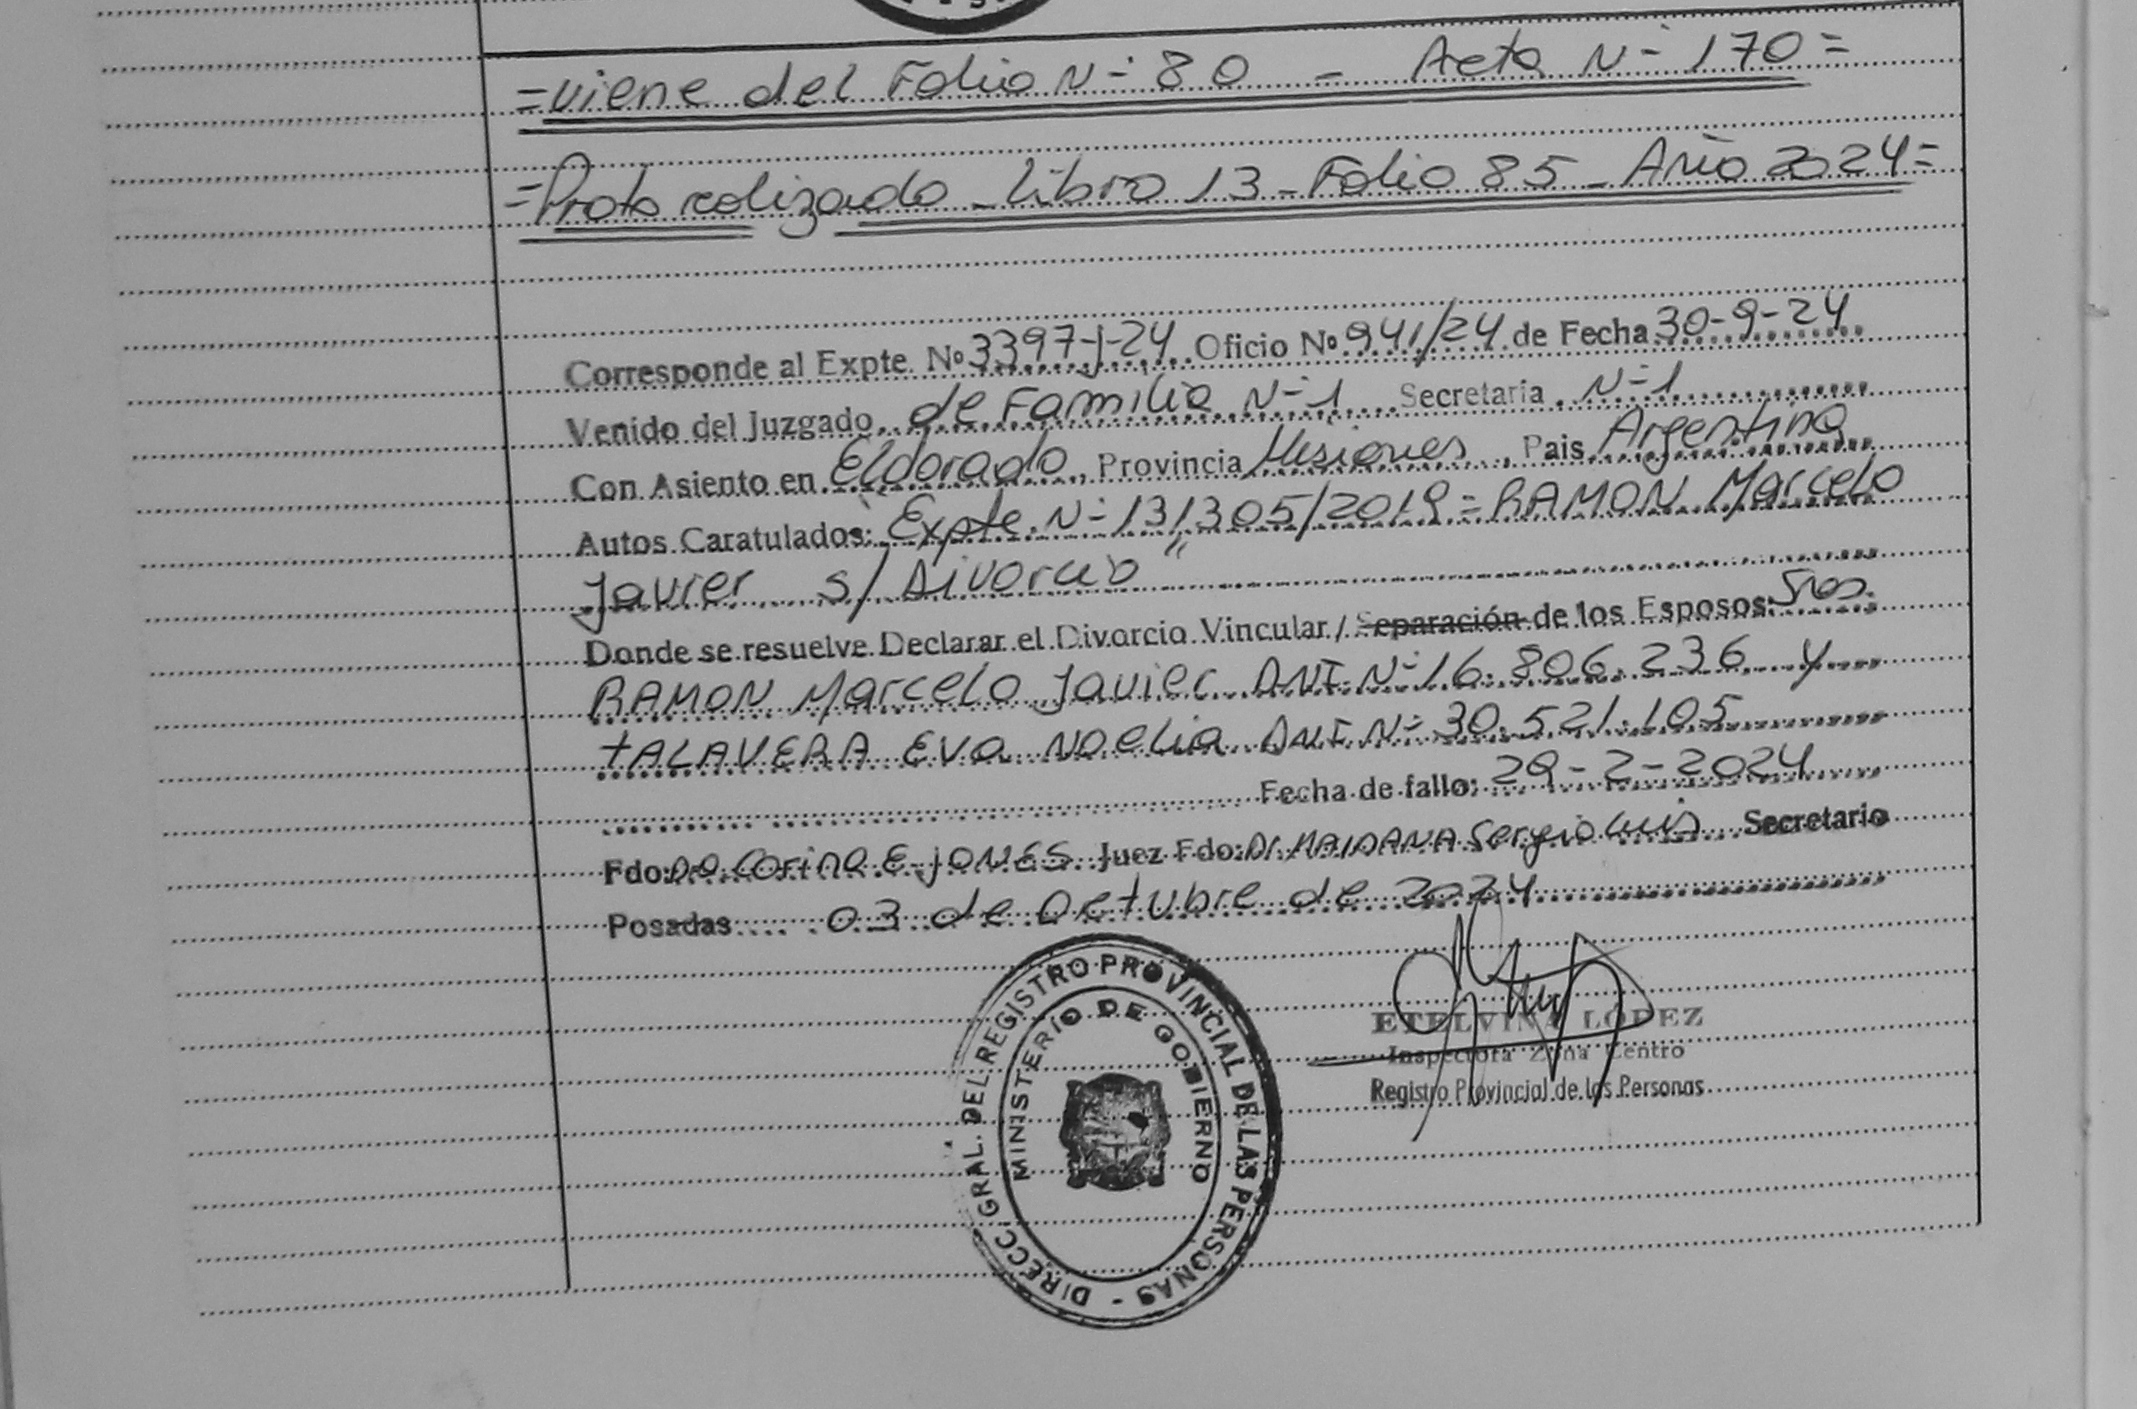 =viene del Folio N- 80 - Acta N- 170=
=Protocolizado - Libro 13 - Folio 85 - Año 2024=
Corresponde al Expte. Nº 3397-J-24 Oficio Nº 941/24 de Fecha 30-9-24
Venido del Juzgado de Familia N- 1 Secretaria N- 1
Con Asiento en Eldorado, Provincia Misiones, Pais Argentina
Autos Caratulados: Expte. N- 131305/2019 = RAMON Marcelo
Javier s/ Divorcio"
Donde se resuelve Declarar el Divorcio Vincular / Separación de los Esposos: Sres.
RAMON Marcelo Javier DNI. N- 16.806.236 y
tALAVERA Eva Noelia DNI N- 30.521.105
Fecha de fallo: 29-2-2024
Fdo: Dra. Corina E. JONES Juez Fdo: Dr. MAIDANA Sergio Luis Secretario
Posadas 03 de Octubre de 2024
DIRECC. GRAL. DEL REGISTRO PROVINCIAL DE LAS PERSONAS -
MINISTERIO DE GOBIERNO
ETELVINA LÓPEZ
Inspectora Zona Centro
Registro Provincial de las Personas